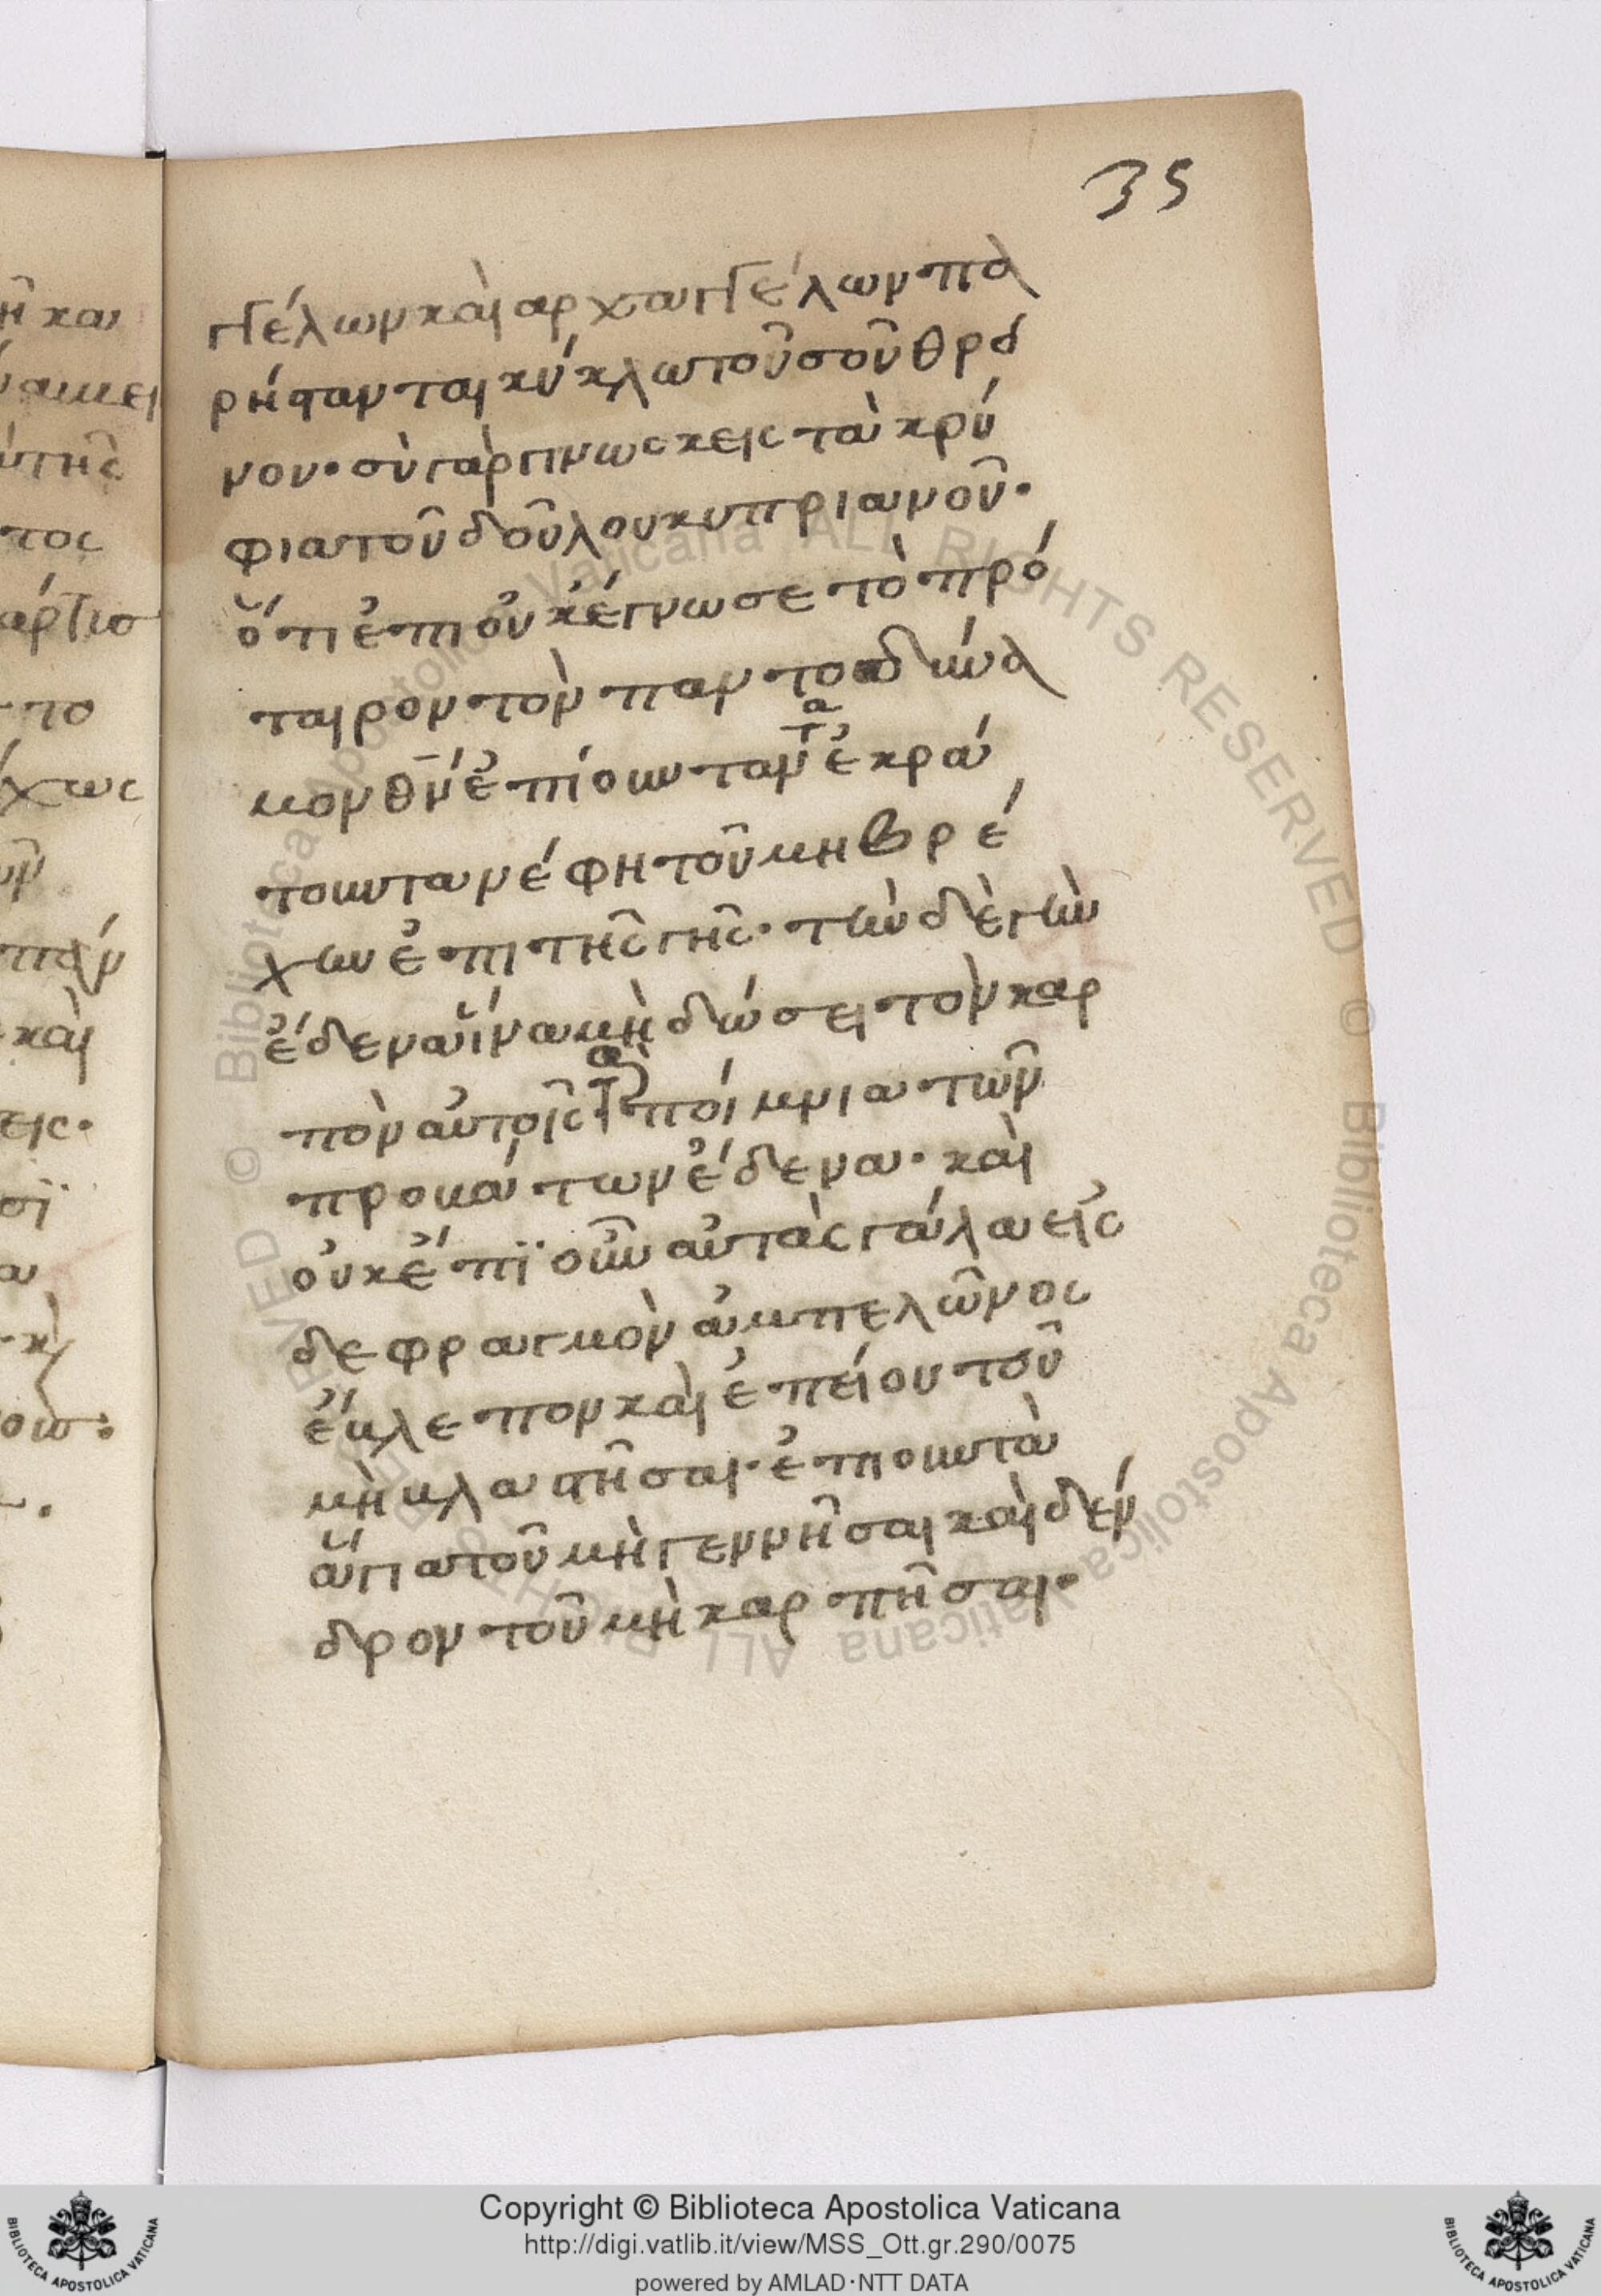 35
γγέλων καὶ αρχαγγέλων πα
ρήσταν ται κύκλω τοῦ σοῦ θρό
νον· σὺ γὰρ γινωσκεις τὰ κρύ
φια τοῦ δοῦλου κυπριανοῦ·
ὅτι ἐπι οὐκ ἔγνωσε τὸ πρό
ταιρον τὸν παντοαδύνα
μον θν́ ἐπίουν τα νέ ἐκρά
τουν τα νέφη τοῦ μη βρέ
χων ἐπι τῆς γῆς· τὼν δὲ γὼν
ἔδενα ἵνα μὴ δώσει τὸν καρ
πὸν αὐτοῖς τὰ ποίμνια τῶν
προβάτων ἔδενα· καὶ
οὐκ ἔπϊουν αὐτὰς γάλα εἰς
δε φραγμὸν ἀμπελῶνος
ἔβλεπον καὶ ἐπείουν τοῦ
μὴ βλαστῆσαι· ἐπιουν τὰ
ἅγια τοῦ μὴ γεννῆσαι καὶ δέν
δρον τοῦ μὴ καρπῆσαι·
ῆ και
ύτῆς
τος
το
χως
καὶ
εις·
Copyright © Biblioteca Apostolica Vaticana
http://digi.vatlib.it/view/MSS_Ott.gr.290/0075
powered by AMLAD·NTT DATA
BIBLIOTECA APOSTOLICA VATICANA
BIBLIOTECA APOSTOLICA VATICANA
© Biblioteca Apostolica Vaticana ALL RIGHTS RESERVED
© Biblioteca Apostolica Vaticana ALL RIGHTS RESERVED